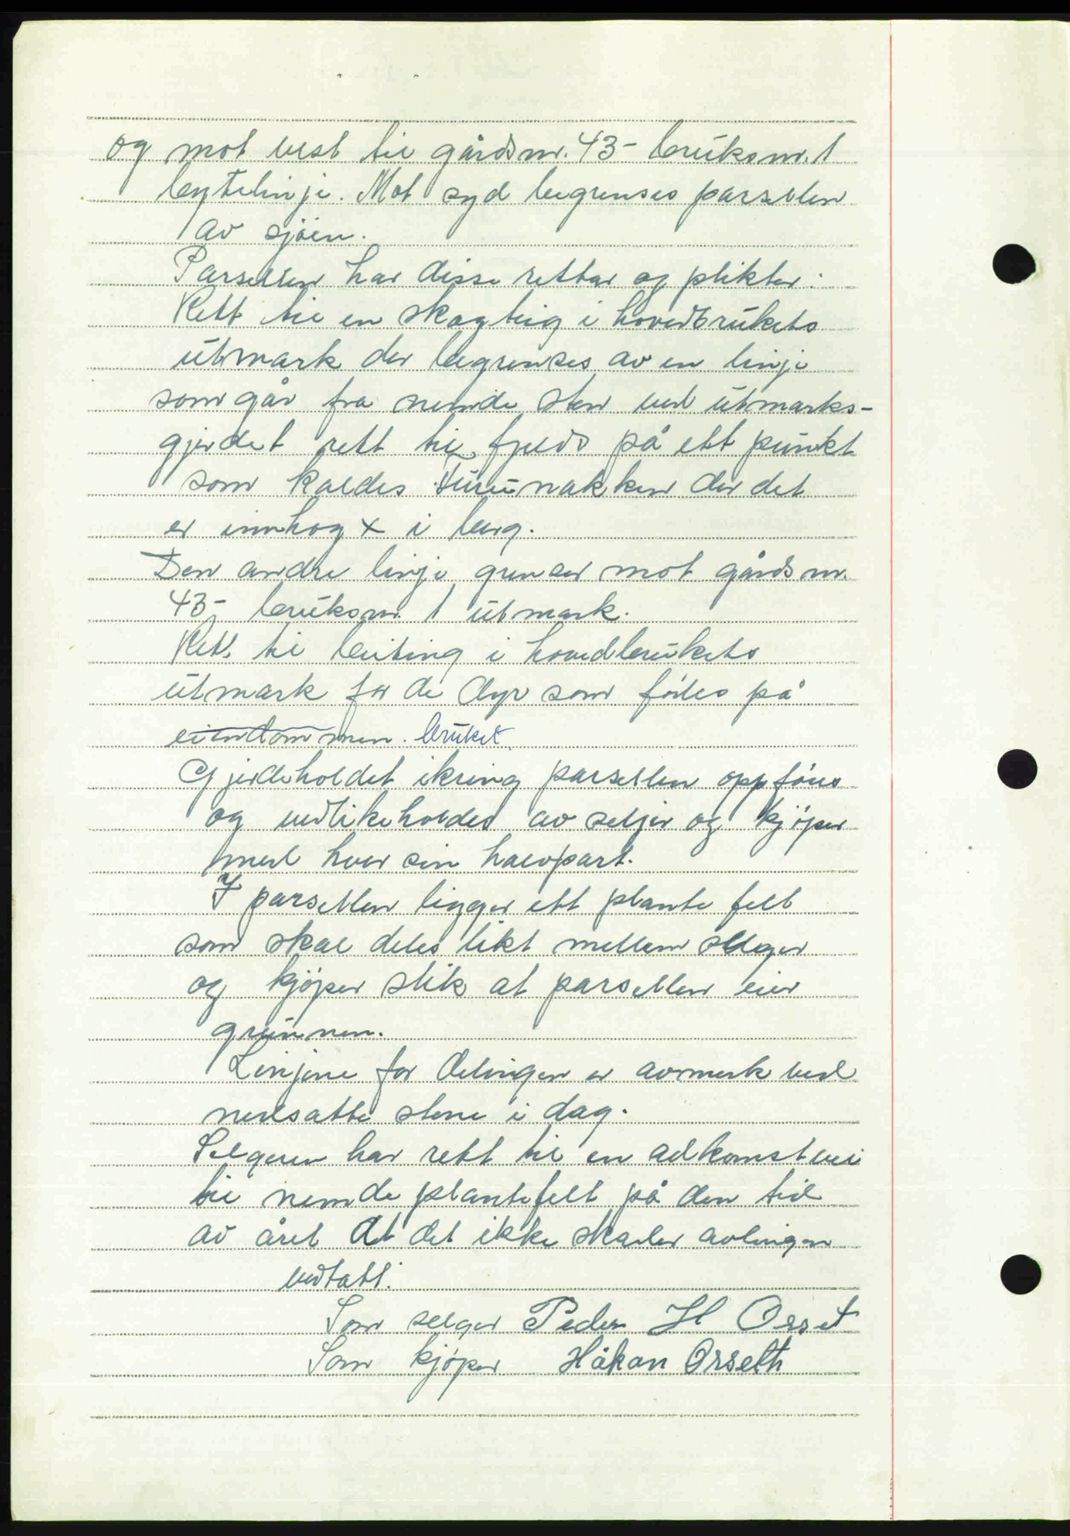 og mot vest til gårdsnr. 43 - bruksnr. 1
bytelinje. Mot syd begrenses parsellen
av sjöen.
Parsellen har disse rettar og plikter:
Rett til en skogteig i hovedbrukets
utmark der begrenses av en linje
som går fra nemde sten ved utmarks-
gjerdet rett til fjelds på ett punkt
som kaldes Furunakken der det
er innhog x i berg.
Den andre linje grenser mot gårdsnr.
43 - bruksnr. 1 utmark.
Rett til beiting i hovedbrukets
utmark for de dyr som födes på
eiendommen. bruket.
Gjerdeholdet ikring parsellen oppföres
og vedlikeholdes av seljer og kjøper
med hver sin halvpart.
I parsellen ligger ett plante felt
som skal deles likt mellem selger
og kjøper slik at parsellen eier
grunnen.
Linjene for delingen er avmerk ved
nedsatte stene i dag.
Selgeren har rett til en adkomstvei
til nemde plantefelt på den tid
av året at det ikke skader avlingen
vedtatt.
Som selger Peder H Orset
Som kjøper Håkan Orseth